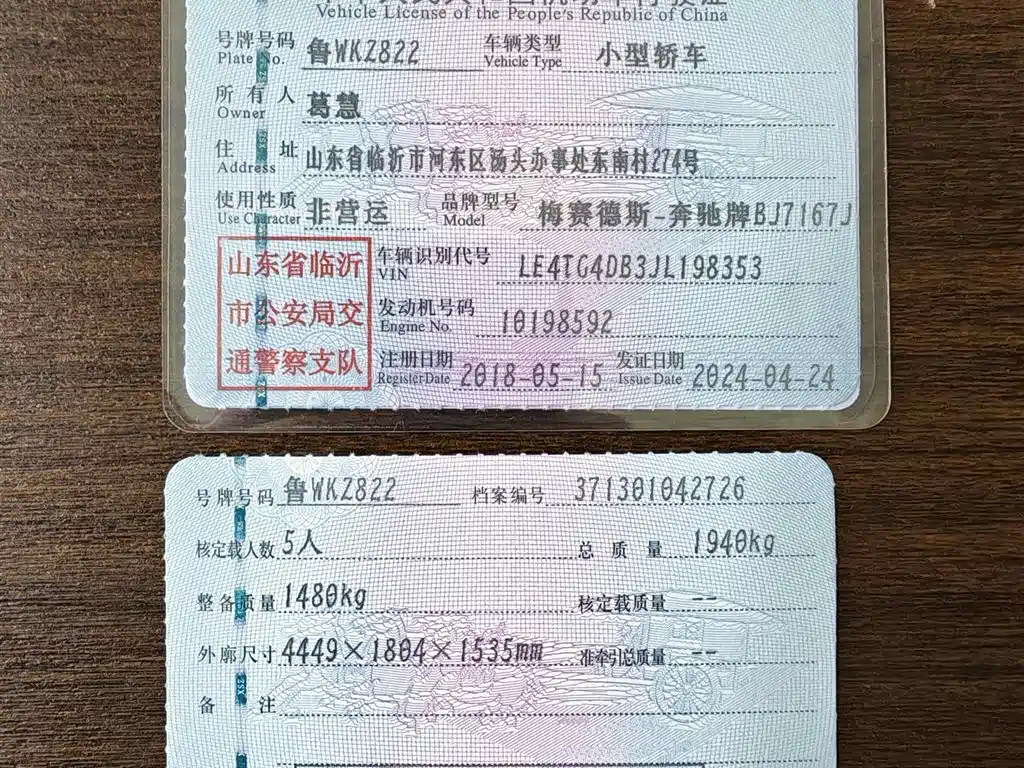 Vehicle License of the People's Republic of China
号牌号码 鲁WKZ822 车辆类型 小型轿车
Plate No. Vehicle Type
所有人 葛慧
Owner
住址 山东省临沂市河东区汤头办事处东南村274号
Address
使用性质 非营运 品牌型号 梅赛德斯-奔驰牌BJ7167J
Use Character Model
山东省临沂 车辆识别代号 LE4TG4DB3JL198353
VIN
市公安局交 发动机号码 10198592
Engine No.
通警察支队 注册日期 2018-05-15 发证日期 2024-04-24
Register Date Issue Date
号牌号码 鲁WKZ822 档案编号 371301042726
核定载人数 5人 总质量 1940kg
整备质量 1480kg 核定载质量 --
外廓尺寸 4449×1804×1535mm 准牵引总质量 --
备注